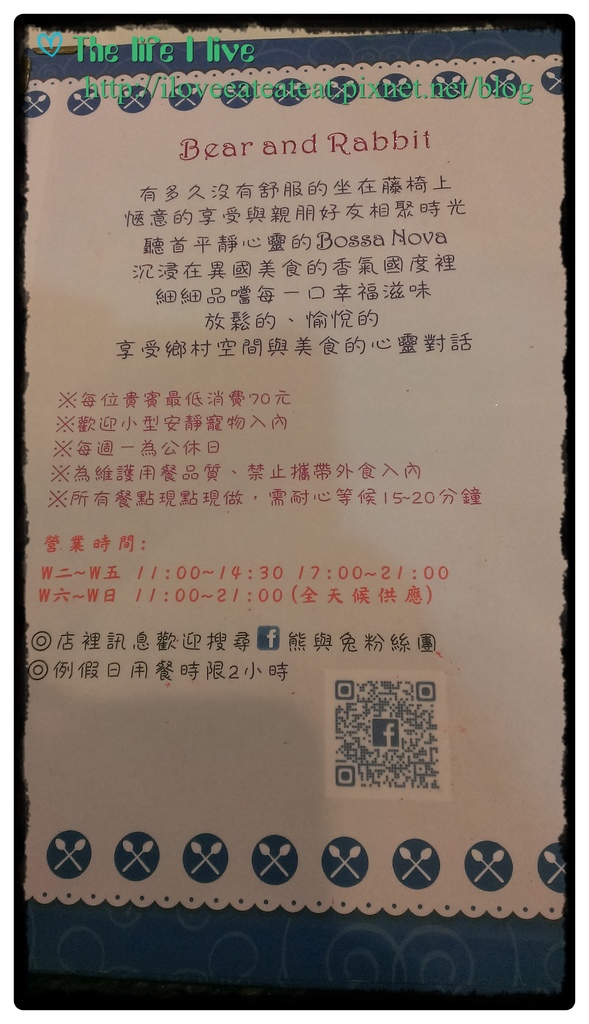 The life I live
http://iloveeateateat.pixnet.net/blog
Bear and Rabbit
有多久沒有舒服的坐在藤椅上
愜意的享受與親朋好友相聚時光
聽首平靜心靈的Bossa Nova
沉浸在異國美食的香氣國度裡
細細品嚐每一口幸福滋味
放鬆的、愉悅的
享受鄉村空間與美食的心靈對話
※每位貴賓最低消費70元
※歡迎小型安靜寵物入內
※每週一為公休日
※為維護用餐品質、禁止攜帶外食入內
※所有餐點現點現做，需耐心等候15~20分鐘
營業時間：
W二~W五 11:00~14:30 17:00~21:00
W六~W日 11:00~21:00 (全天候供應)
◎店裡訊息歡迎搜尋f熊與兔粉絲團
◎例假日用餐時限2小時